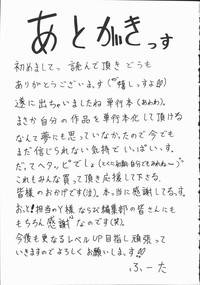 あとがきっす
初めまして。読んで頂き どうも
ありがとうございます。(°精っすよ°)!!
遂に出ちゃいましたね単行本(あわわ)。
まさか自分の作品を単行本化して頂ける
なんて夢にも思っていなかったので今でも
まだ信じられない気持ちでいっぱいす。
だってヘタッピでしょ
これもみんな買って頂き応援して下さる
皆様のおかげです(泣)。本当に感謝してるす。
おっと!担当のY様ならび編集部の皆さんにも
もちろん感謝なのです(笑)。
今後も更なるレベルUP目指し頑張って
いきますのでよろしくお願いします!!
ふーた